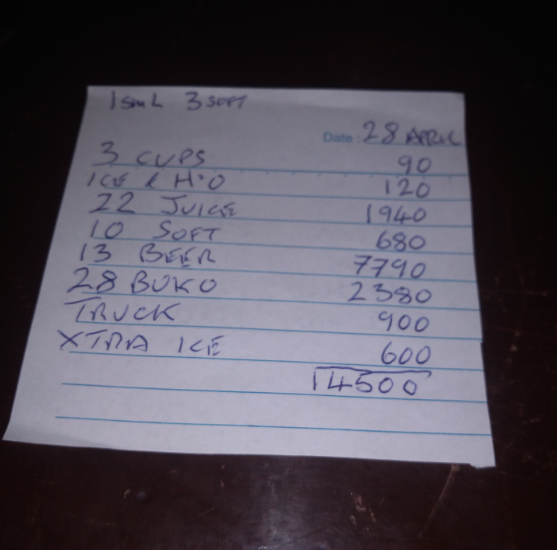 1 SML 3 SOFT
Date: 28 APRIL
3 CUPS 90
ICE & H2O 120
22 JUICE 1940
10 SOFT 680
13 BEER 7790
28 BUKO 2380
TRUCK 900
XTRA ICE 600
14500